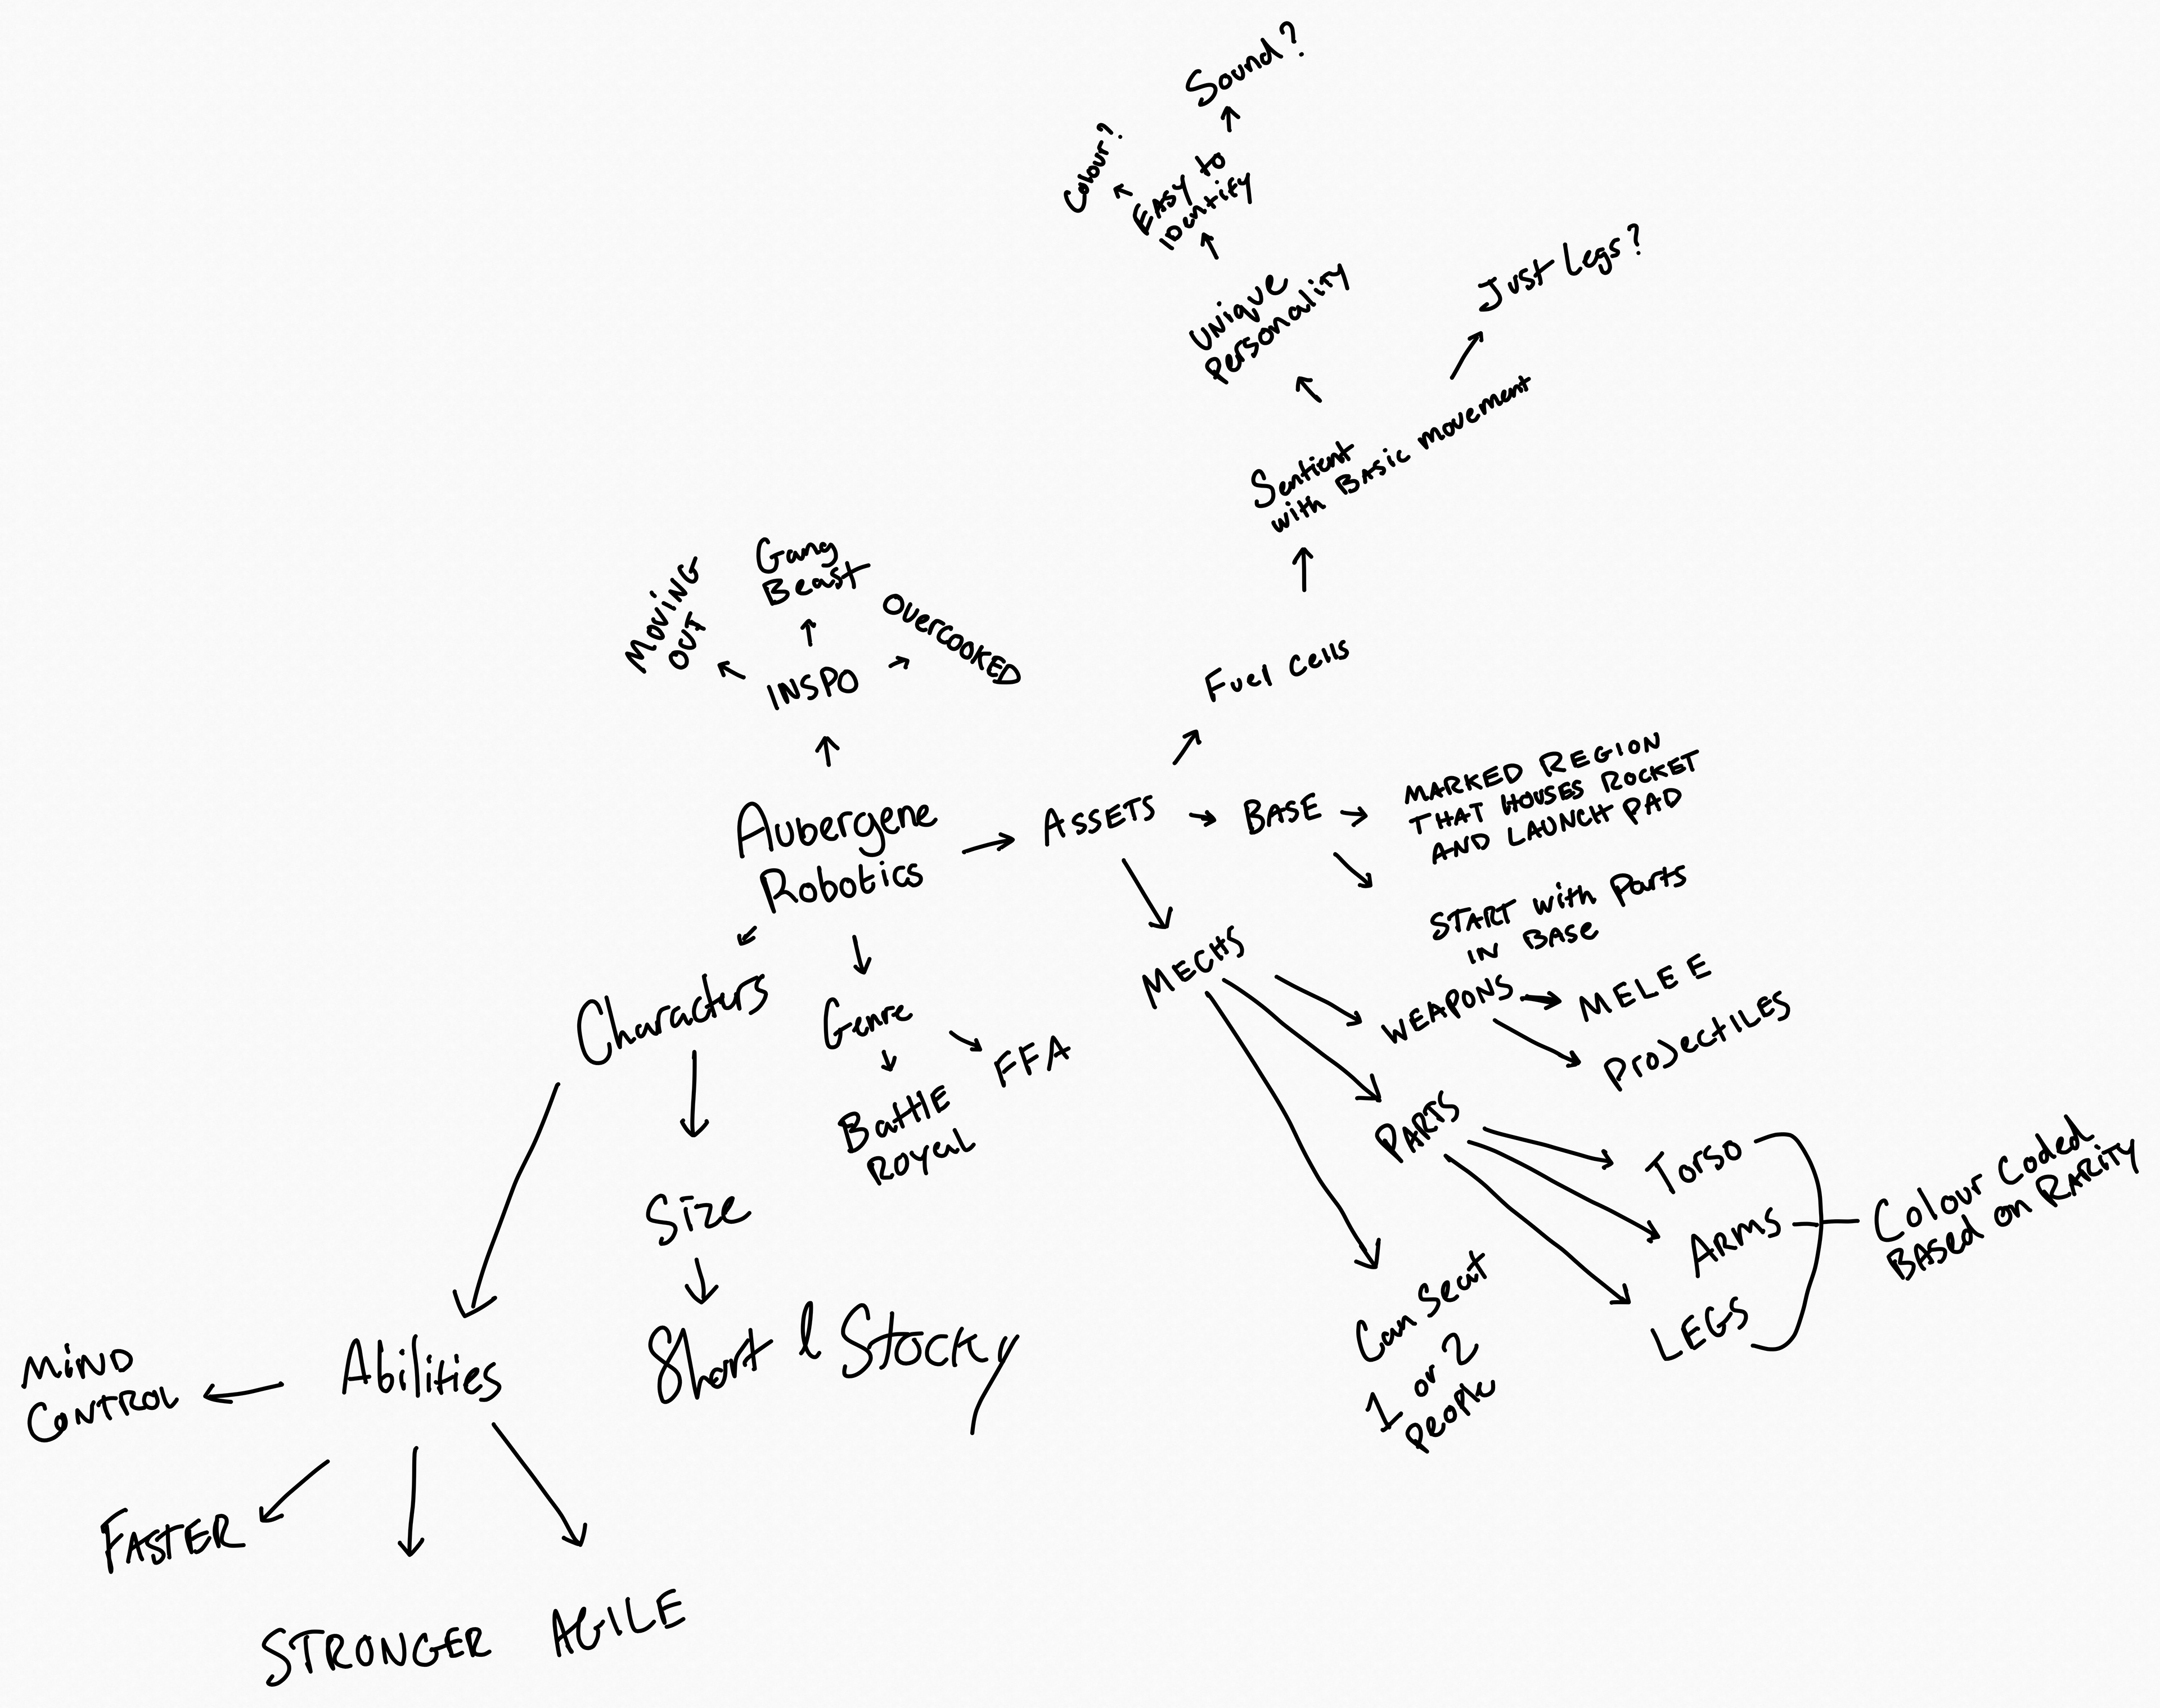 Sound?
Colour?
EASY to
identify
Unique
Personality
Just Legs?
Sentient
with Basic movement
Fuel Cells
MOVING
OUT
Gang
Beast
OVERCOOKED
INSPO
Aubergene
Robotics
ASSETS
BASE
MARKED REGION
THAT HOUSES ROCKET
AND LAUNCH PAD
START with Parts
IN BASE
MECHS
WEAPONS
MELEE
ProJectILES
PARTS
Torso
Arms
LEGS
Colour Coded
BASed on RARity
Can Seat
1 or 2
People
Characturs
Genre
FFA
Battle
Royal
Size
Short & Stocky
Abilities
MiND
CONTROL
FASTER
STRONGER
AGILE